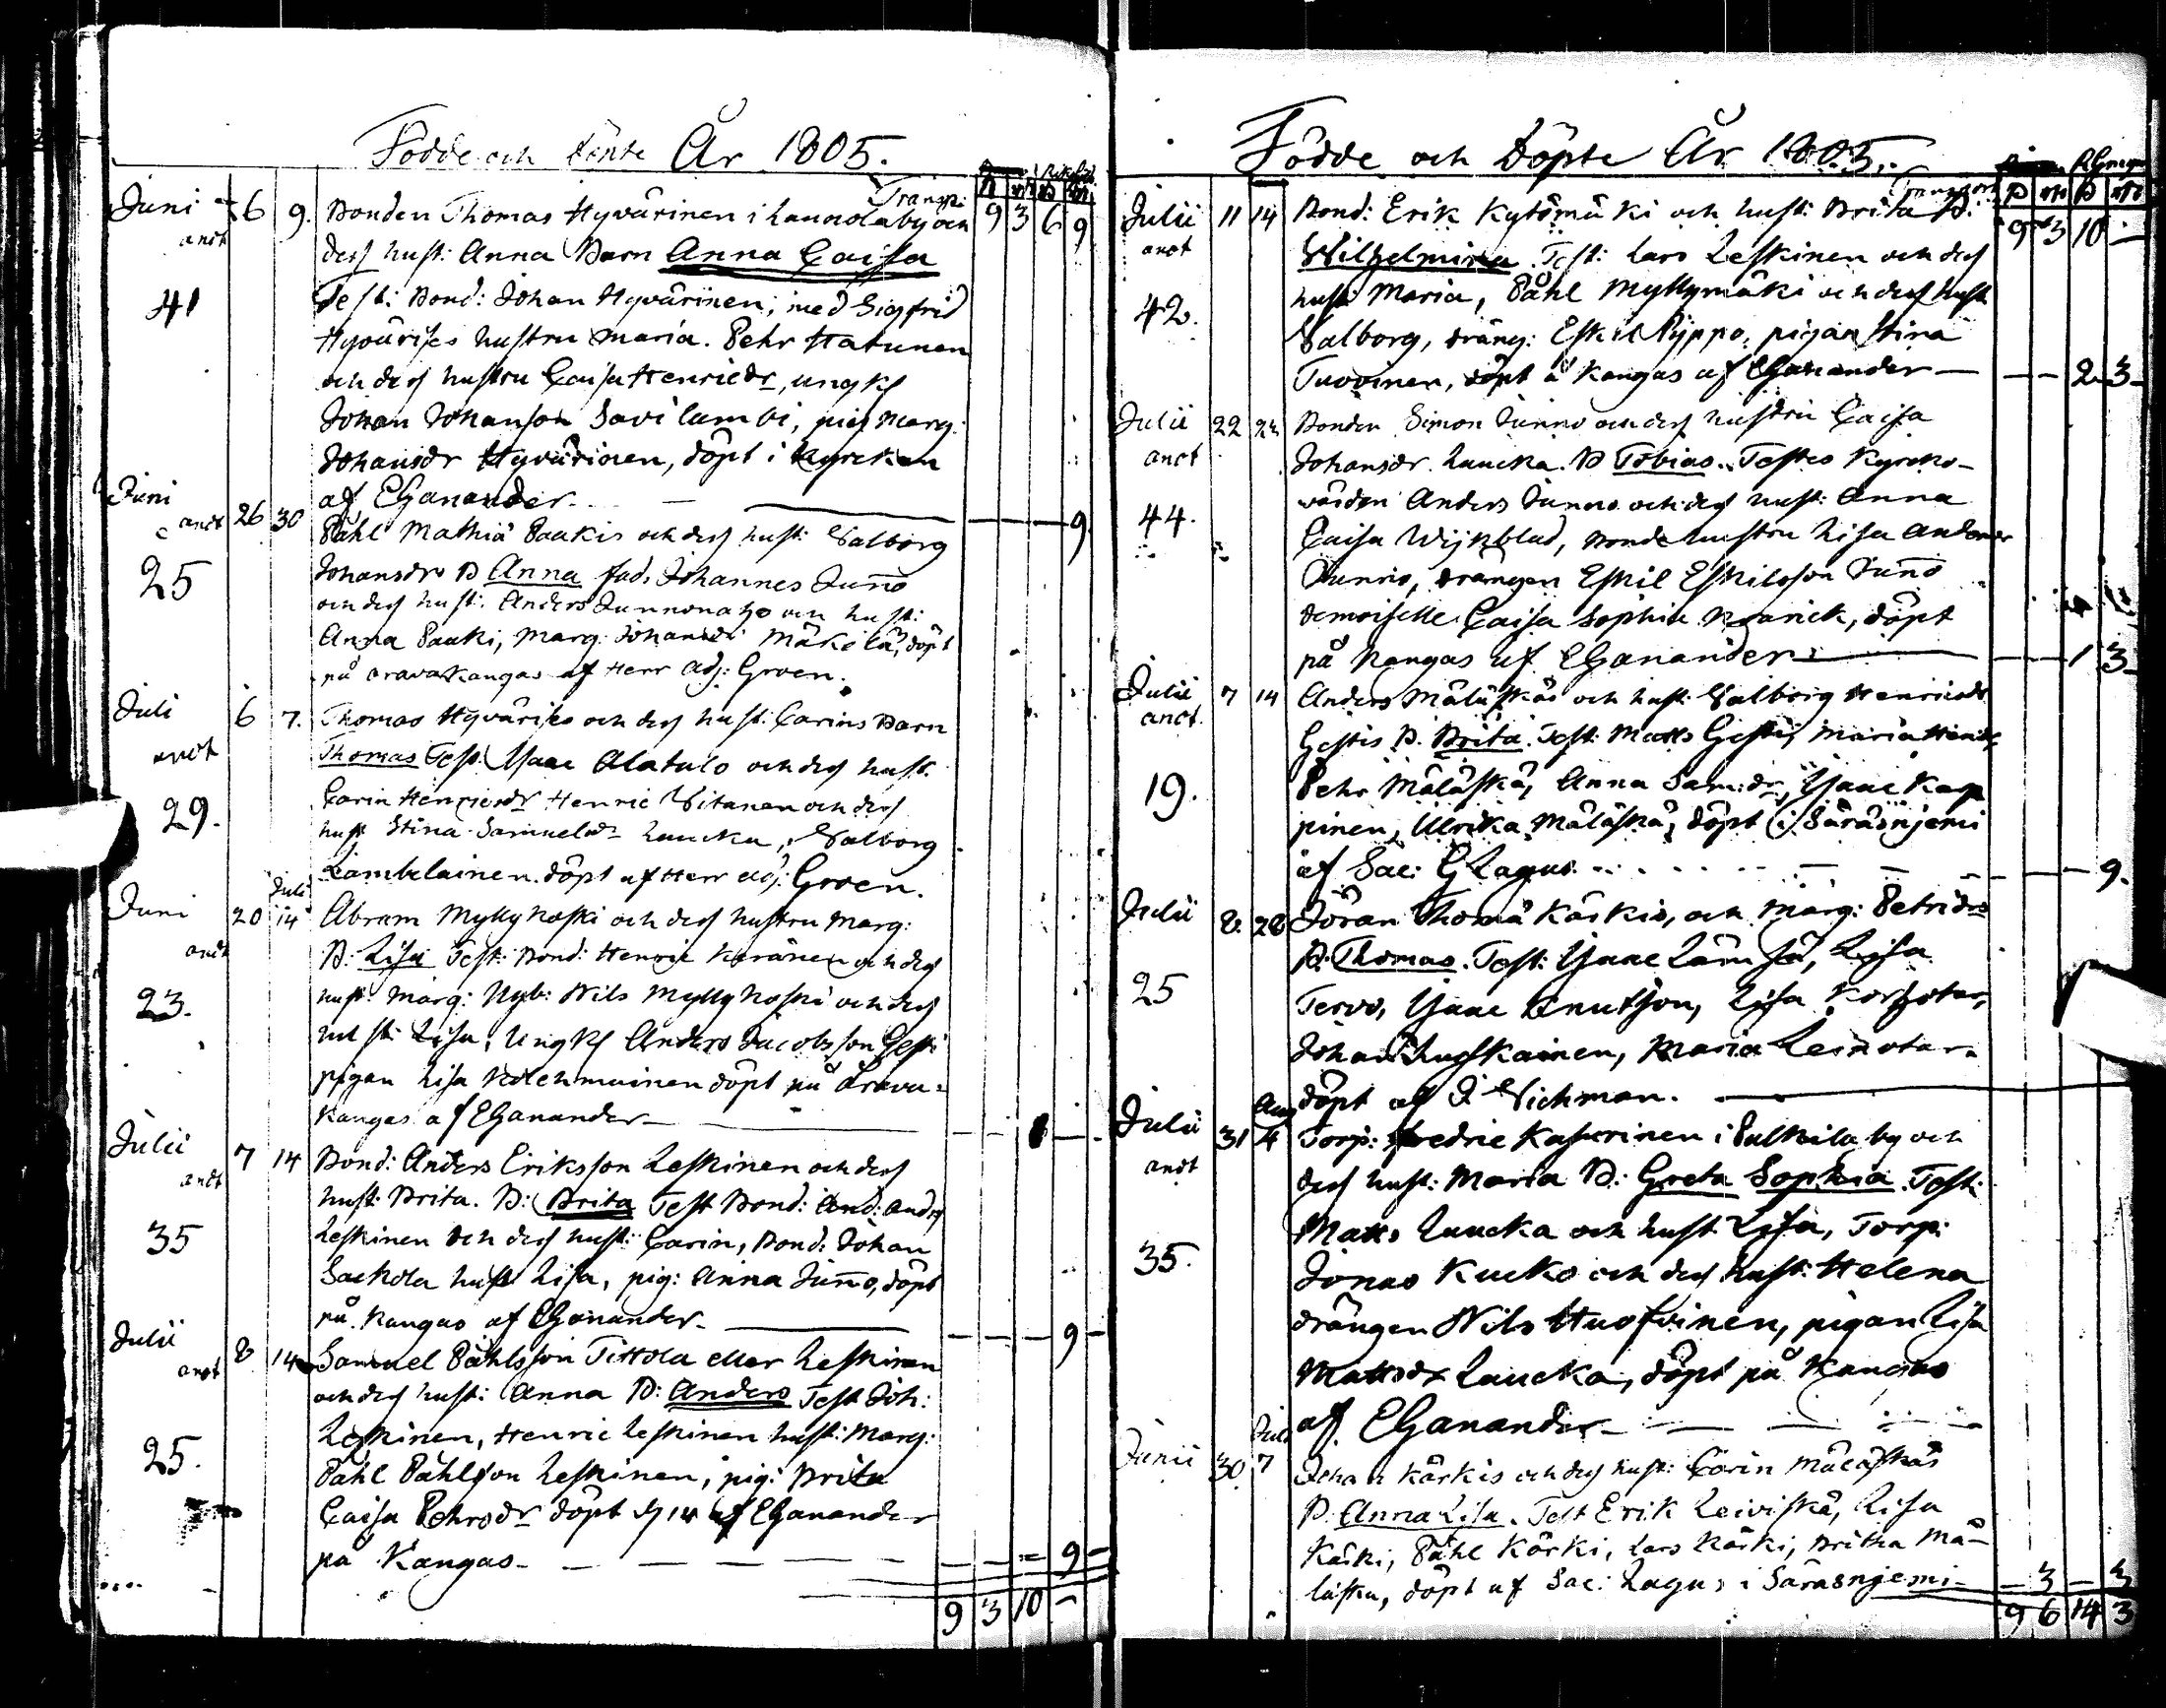 Födde och döpte År 1805.
Transp:
Juni 6 9. Bonden Thomas Hyvärinen i Launola by och 9 3 6 9
anct
dess hust: Anna Barn Anna Caisa
41
Test: Bond: Johan Hyvärinen, med Sigfrid
Hyvärises hustru Maria. Pehr Hatunen
och dess hustru Caisa Henricdr, ungk
Johan Johansson Savilambi, pig Marg:
Johansdr Hyvärinen, döpt i Kyrckan
af EGanander. 9.
Juni 26 30
anct
Påhl Mathiæ Paakis och dess hust: Valborg
25
Johansdrs B Anna fad. Johannes Junno
och dess hust: Anders Junnonaho och hust:
Anna Paaki, Marg: Johansdr Mäkelä, döpt
på Aravakangas af Herr Adj: Groen.
Juli 6 7. Thomas Hyvärises och dess hust: Carins Barn
anct
Thomas Test. Isaac Alatalo och dess hust.
29.
Carin Henricsdr Henric Vitanen och dess
hust Stina Samuelsdr Laucka, Valborg
Lämbelainen. döpt af Herr Adj: Groen.
Juni 20 Juli 14 Abram Myllykoski och dess hustru Marg:
anct
B: Lisa Test: Bond: Henric Keränen och dess
23.
hust: Marg: Nyb: Nils Myllykoski och dess
hust: Lisa, Ungk Anders Jacobsson Gesti
pigan Lisa Kolehmainen döpt på Arava-
kangas af EGanander
Julii 7 14 Bond: Anders Eriksson Leskinen och dess
anct
hust: Brita. B: Brita Test Bond: And: Ands
35
Leskinen och dess hust: Carin, Bond: Johan
Sackola hust Lisa, pig: Anna Junno, döpt
på Kangas af EGanander 9
Julii 8 14 Samuel Påhlsson Tittola eller Leskinen
anct
och dess hust: Anna B: Anders Test Joh:
Leskinen, Henric Leskinen hust: Marg:
25.
Påhl Påhlsson Leskinen, pig: Brita
Caisa Pehrsdr döpt d 14 af EGanander
på Kangas 9
9 3 10 -
Födde och Döpte År 1805.
Transport
Julii 11 14 Bond: Erik Kytömäki och hust: Brita B. 9 3 10 -
anct
Wilhelmina. Test: Lars Leskinen och dess
42.
hust: Maria, Påhl Myllymäki och dess hust
Valborg, dräng: Eskil Pyppo, pigan Stina
Tuovinen, döpt å Kangas af EGanander 2 3
Julii 22 24 Bonden Simon Junno och dess hustru Caisa
anct
Johansdr Laucka. B Tobias. Testes Kyrcko-
44.
värden Anders Junno och dess hust: Anna
Caisa Wijkblad, Bonde hustru Lisa Anders
Junno, drängen Eskil Eskilsson Junno
demoiselle Caisa Sophia, döpt
på Kangas af EGanander 1 3
Julii 7 14 Anders Mäläskäs och hust: Valborg Henricsdr
anct.
Gestis B. Brita. Test: Matts Gesti, Maria Henricdr
19.
Pehr Mäläskä, Anna Sam:dr, Isaac Kap
pinen, Ulrika Mäläskä, döpt i Säräsnjemi
af Sac: G Lagus. 9.
Julii 8. 28 Jöran Thomæ Kärkis, och Marg: Petridrs
B. Thomas. Test: Isaac Lämsä, Lisa
25
Tervo, Isaac Knutson, Lisa
Johan Huuskainen, Maria Leinotar
döpt af J. Wichman.
Julii 31 Aug 4 Torp: Fredric Kasurinen i Pulkila by och
anct
dess hust: Maria B: Greta Sophia. Test:
Matts Laucka och hust Lisa, Torp:
35.
Jonas Kucko och dess hust: Helena
drängen Nils Huofvinen, pigan Lisa
Mattsdr Laucka, döpt på Kangas
af EGanander
Junii 30. Juli 7 Johan Kärkis och dess hust: Carin Mäläskäs
B. Anna Lisa. Test Erik Leiviskä, Lisa
Kärki, Påhl Kärki, Lars Kärki, Britha Mä-
läskä, döpt af Sac: Lagus i Säräsnjemi 3 - 3
9 6 14 3